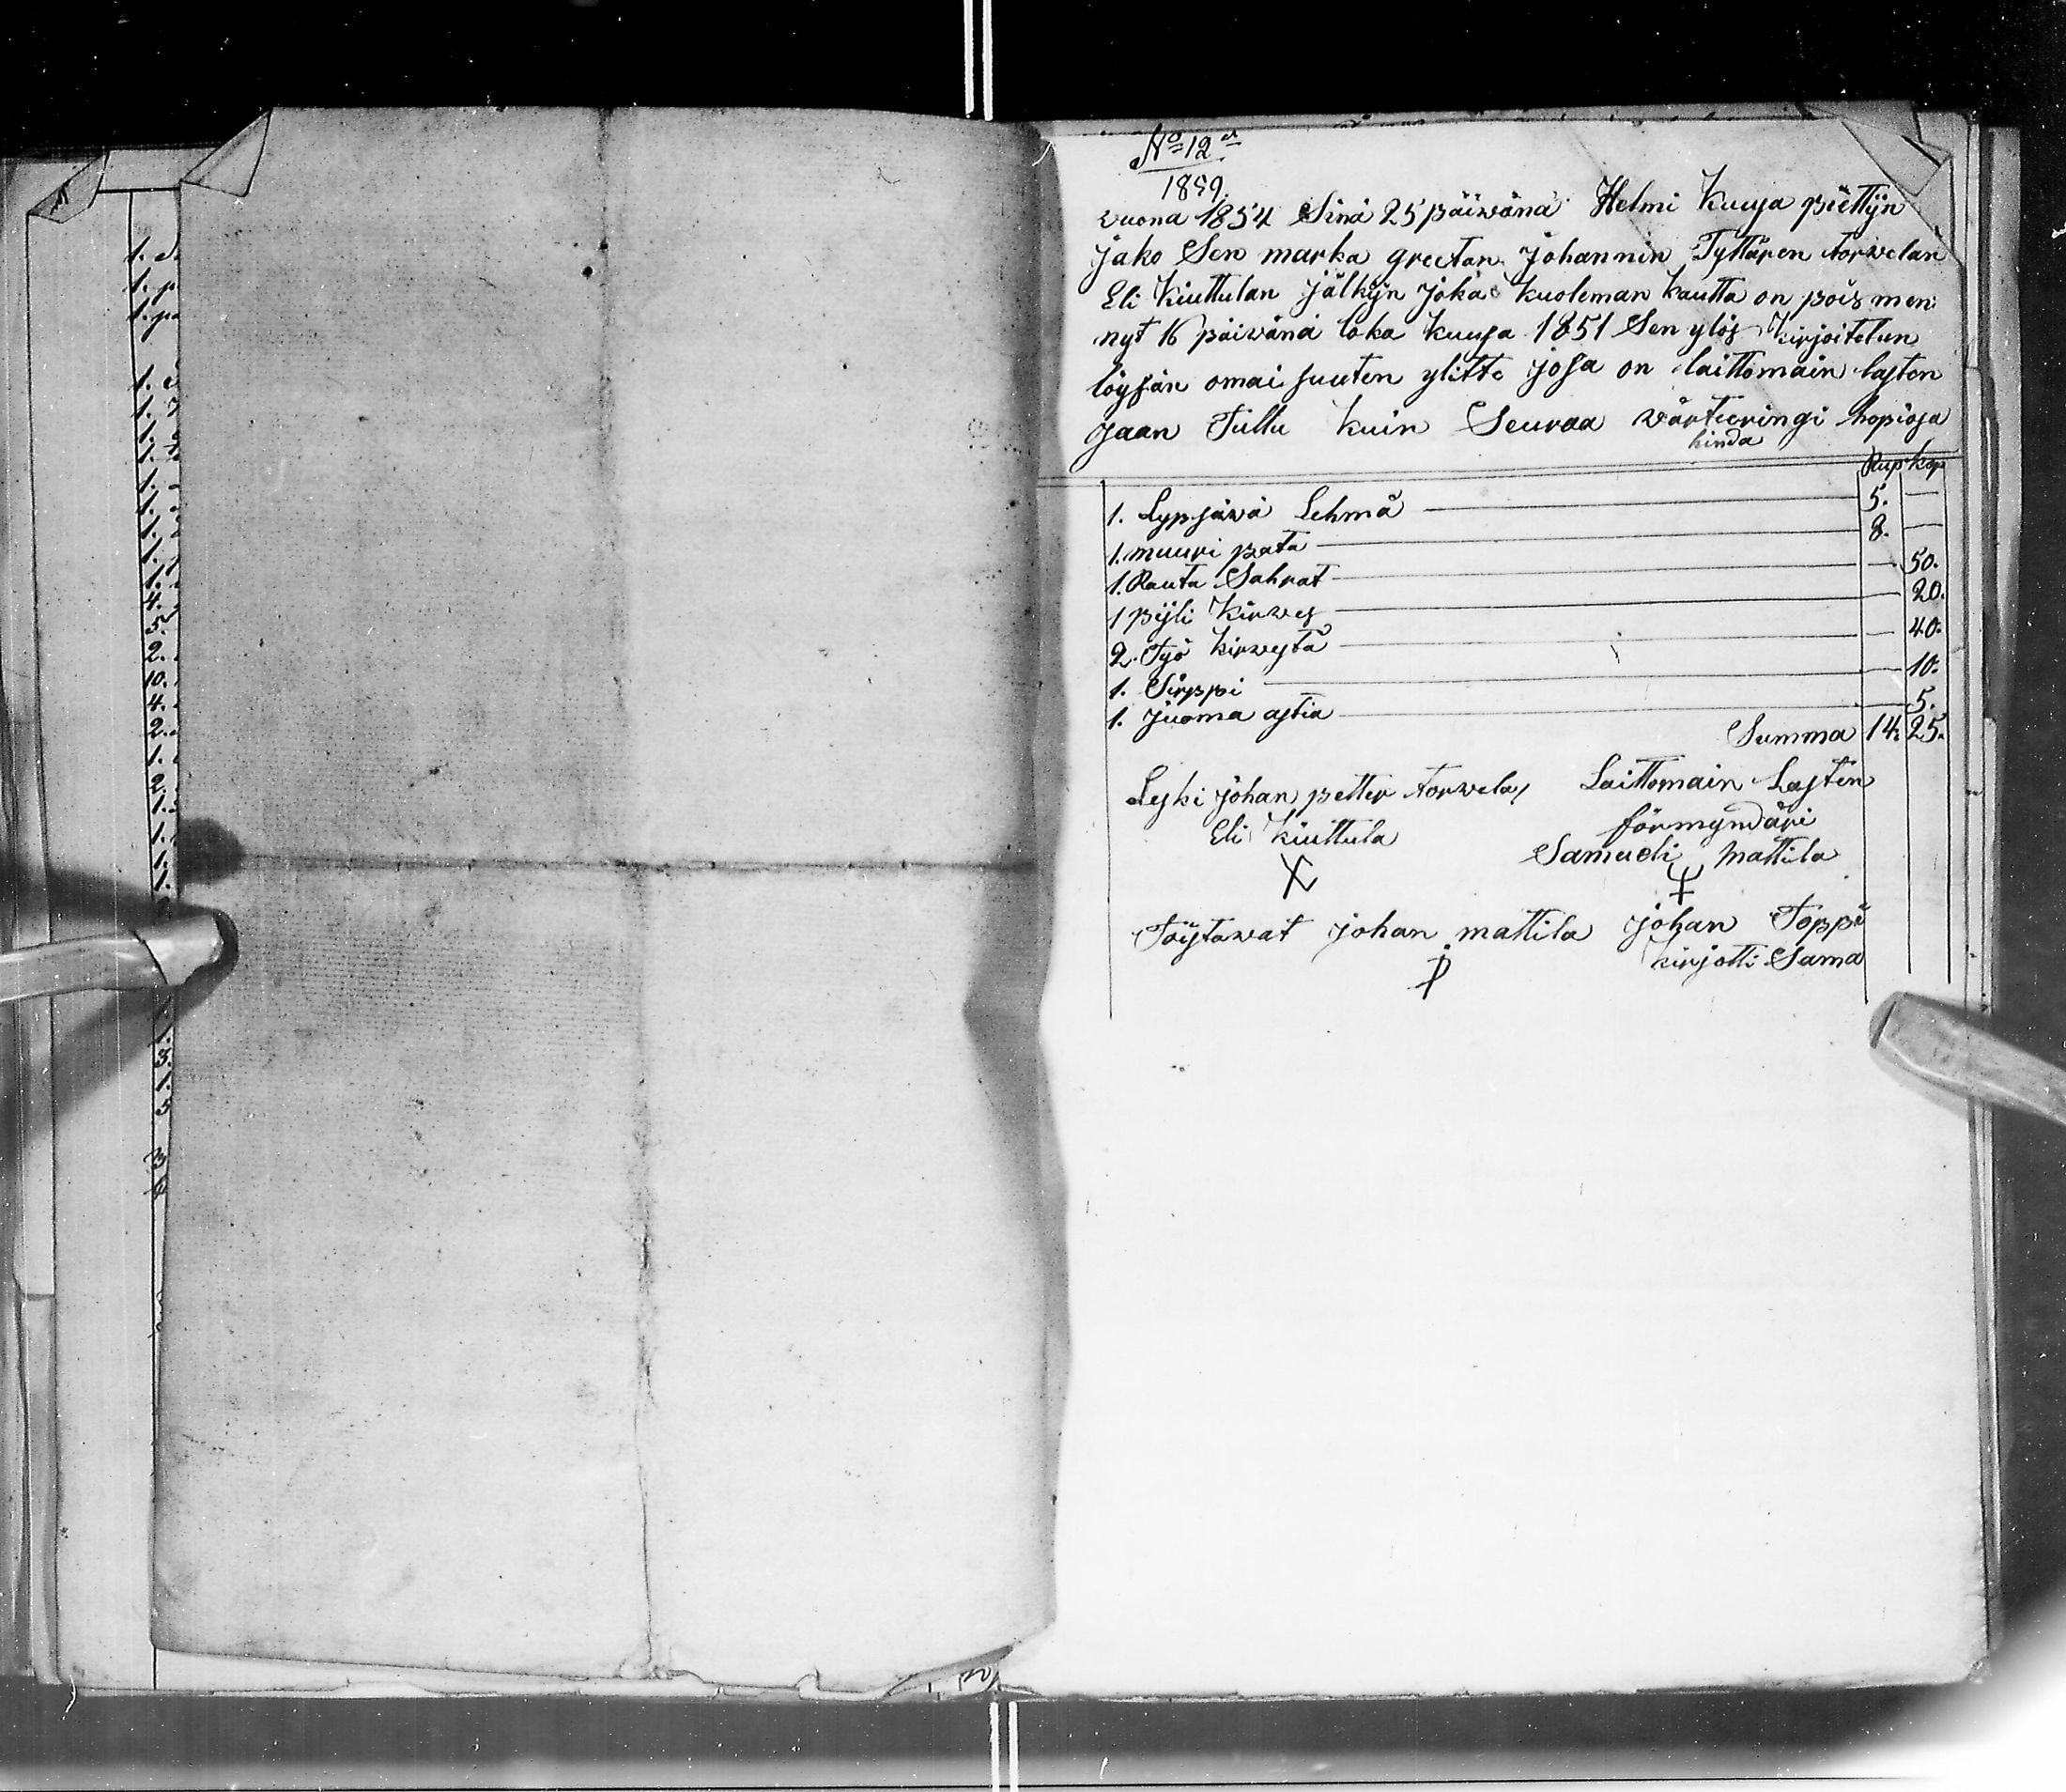 No 12
1859.
Vuona 1854 Sinä 25 päiwänä Helmi Kuusa piettijn
jako Sen marka greetan Johannin Tyttären torwelan
Eli Kiuttulan jälkijn joka Kuoleman kautta on pois men
nyt 16 päivänä loka kuusa 1851 Sen ylös kirjoitetun
löysän omaisuuten ylitte josa on laittomain lasten
jaan Tullu kuin Seuraa värteeringi hopiosa
hinda
Rup kop
1. Lypsävä Lehmä 5. —
1. muuri pata 8. —
1. Rauta Sahrat — 50.
1 pijli Kirves — 20.
2. Työ kirvestä — 40.
1. Sirppi — 10.
1. Juoma astia — 5.
Summa 14. 25.
Leski johan petter torvela, Laittomain Lasten
Eli Kiuttula förmyndäri
Samueli mattila
Toistavat johan mattila johan Toppi
kirjotti Sama
1.
1. p
1. pa
1.
1.
1.
1.
1.
1.
1.
1.
1.
4.
5.
2.
10.
4.
2.
1.
2.
1.
1.
1.
1.
1.
3.
1.
5